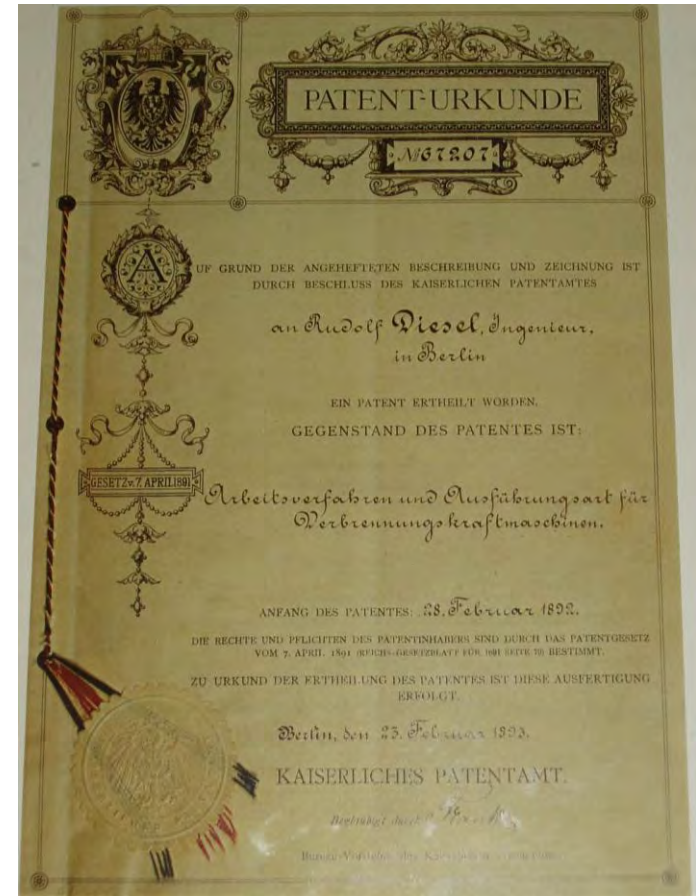 PATENT-URKUNDE
№ 67207
AUF GRUND DER ANGEHEFTETEN BESCHREIBUNG UND ZEICHNUNG IST
DURCH BESCHLUSS DES KAISERLICHEN PATENTAMTES
an Rudolf Diesel, Ingenieur,
in Berlin
EIN PATENT ERTHEILT WORDEN.
GEGENSTAND DES PATENTES IST:
GESETZ v. 7. APRIL 1891
Arbeitsverfahren und Ausführungsart für
Verbrennungskraftmaschinen.
ANFANG DES PATENTES: 28. Februar 1892.
DIE RECHTE UND PFLICHTEN DES PATENTINHABERS SIND DURCH DAS PATENTGESETZ
VOM 7. APRIL 1891 (REICHS-GESETZBLATT FÜR 1891 SEITE 79) BESTIMMT.
ZU URKUND DER ERTHEILUNG DES PATENTES IST DIESE AUSFERTIGUNG
ERFOLGT.
Berlin, den 23. Februar 1893.
KAISERLICHES PATENTAMT.
Beglaubigt durch